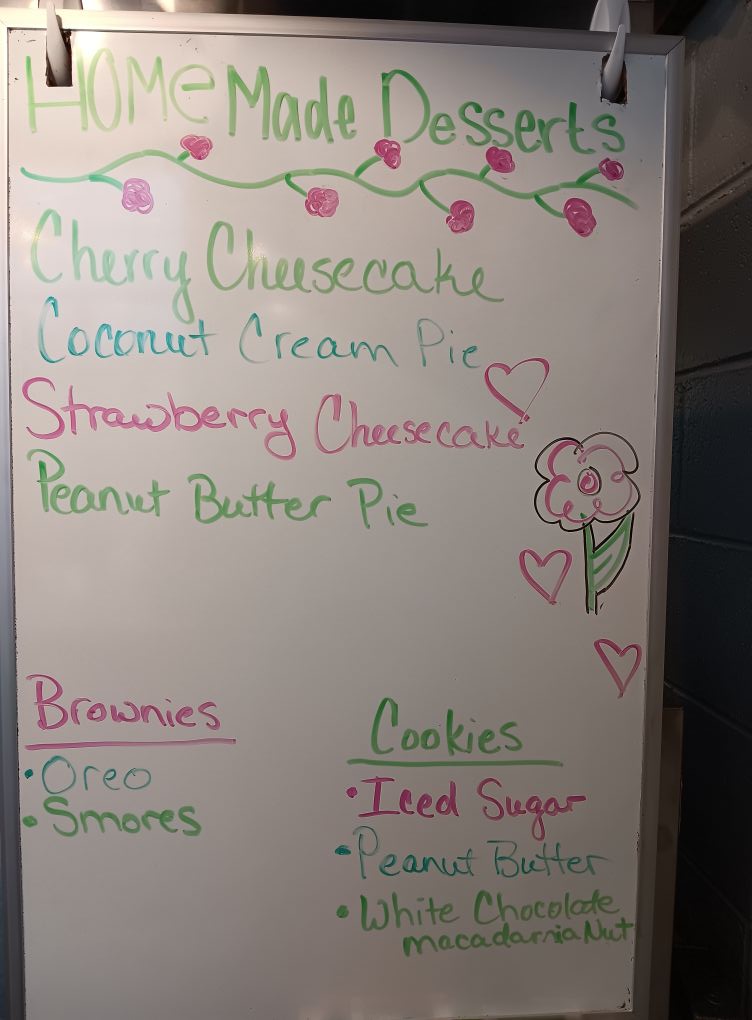 HOMe Made Desserts
Cherry Cheesecake
Coconut Cream Pie
Strawberry Cheesecake
Peanut Butter Pie
Brownies
• Oreo
• Smores
Cookies
• Iced Sugar
• Peanut Butter
• White Chocolate
macadamia Nut